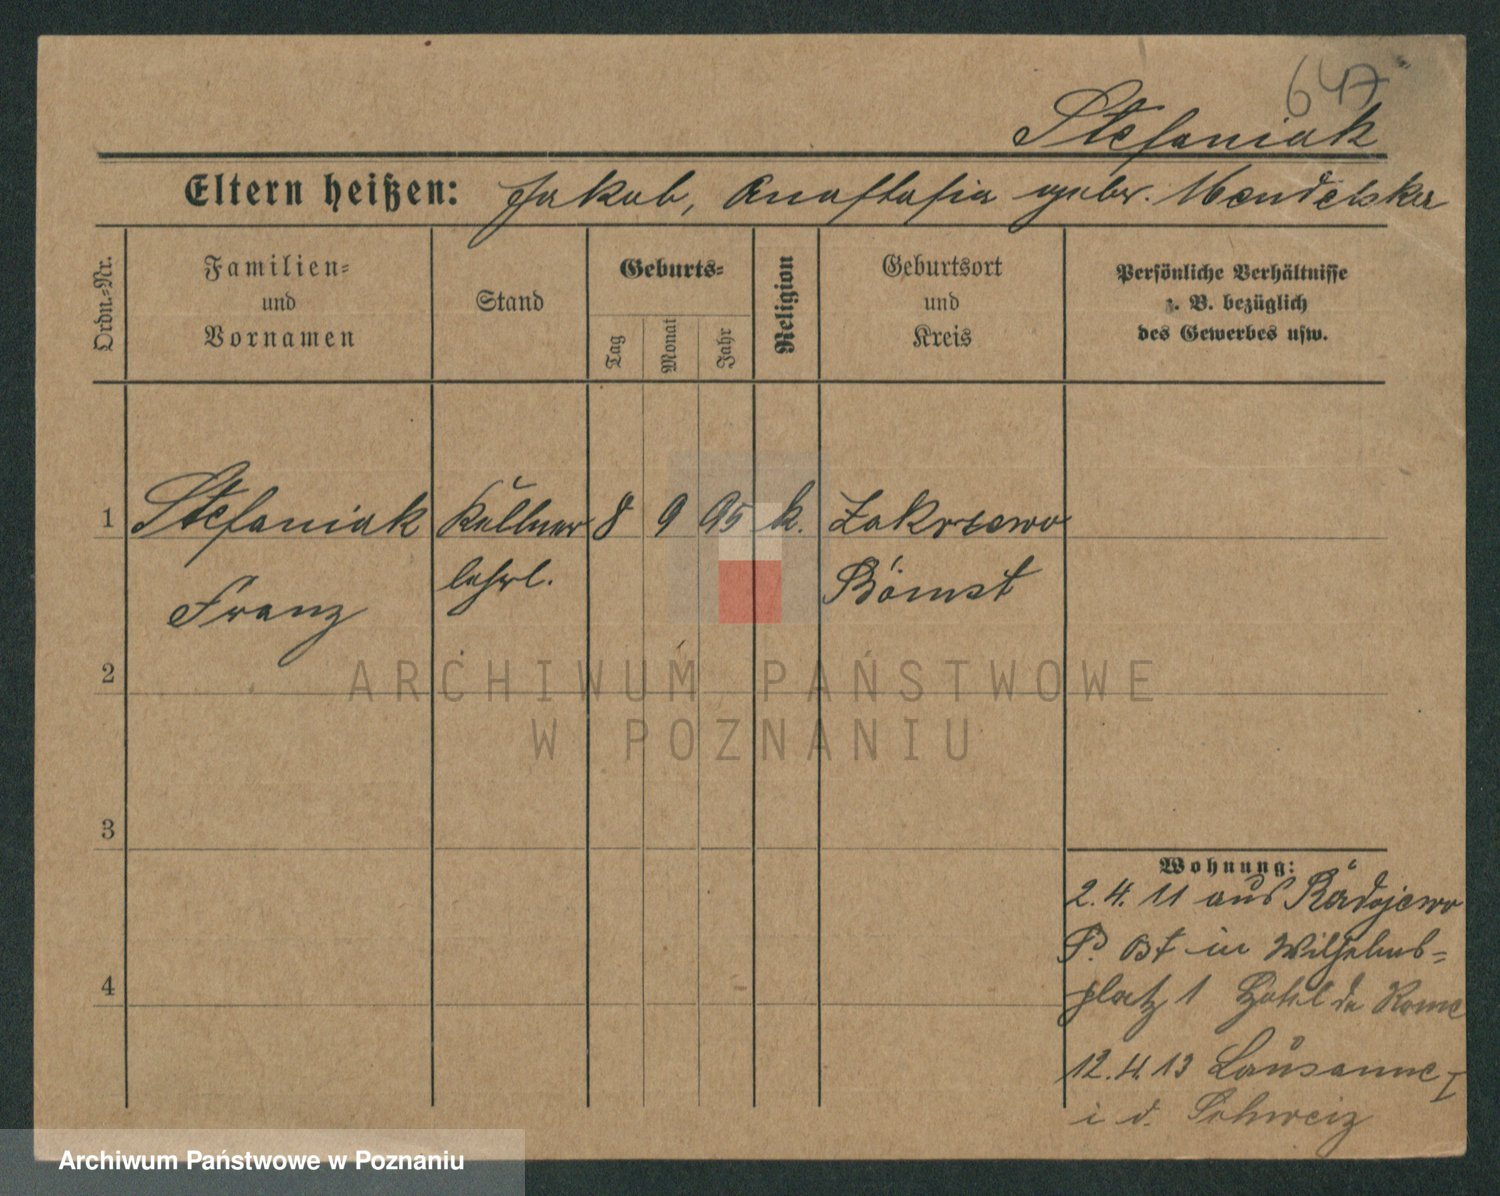 647
Stefaniak
Eltern heißen: Jakob, Anastasia gebr. Mendelska
Ordn.-Nr.
Familien-
und
Vornamen
Stand
Geburts-
Tag
Monat
Jahr
Religion
Geburtsort
und
Kreis
Persönliche Verhältnisse
z. B. bezüglich
des Gewerbes usw.
1 Stefaniak Kellner 8 9 95 k. Zakrzewo
Franz lehrl. Bomst
2
3
4
Wohnung:
2.4.11 aus Radojewo
P. Ost in Wilhelms-
platz 1 Hotel de Rome
12.4.13 Lausanne
i d. Schweiz
ARCHIWUM PAŃSTWOWE
W POZNANIU
Archiwum Państwowe w Poznaniu